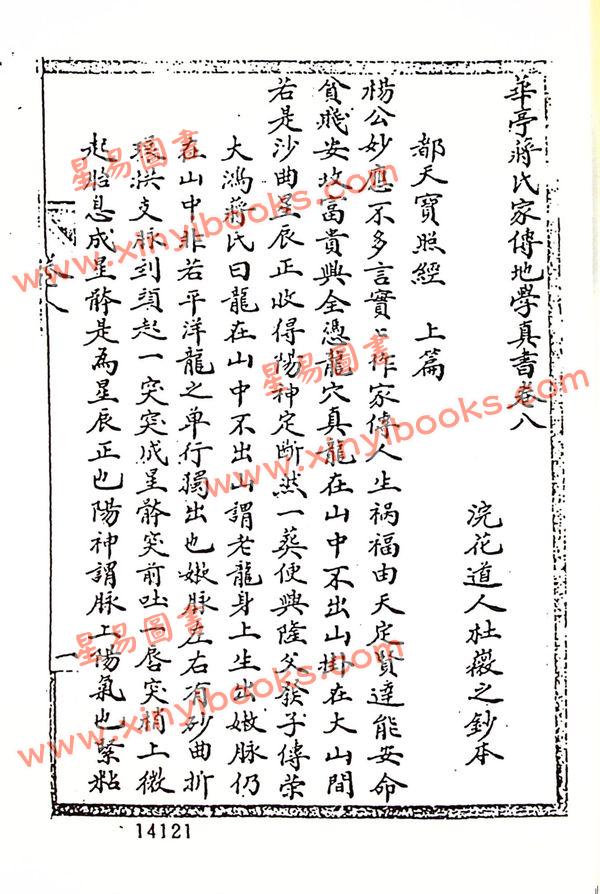 華亭蔣氏家傳地學真書卷八
浣花道人杜薇之鈔本
都天寶照經 上篇
楊公妙應不多言實〻作家傳人生禍福由天定賢達能安命
貧賤安坟富貴興全憑龍穴真龍在山中不出山掛在大山間
若是沙曲星辰正收得陽神定斷然一葬便興隆父發子傳荣
大鴻蔣氏曰龍在山中不出山謂老龍身上生出嫩脉仍
在山中非若平洋龍之单行獨出也嫩脉左右有砂曲折
環拱支脉到頭起一突突成星體突前吐一唇突稍上微
起胎息成星體是為星辰正也陽神謂脉上陽氣也緊粘
卷八
一
14121
星易圖書
www.xinyibooks.com
星易圖書
www.xinyibooks.com
星易圖書
www.xinyibooks.com